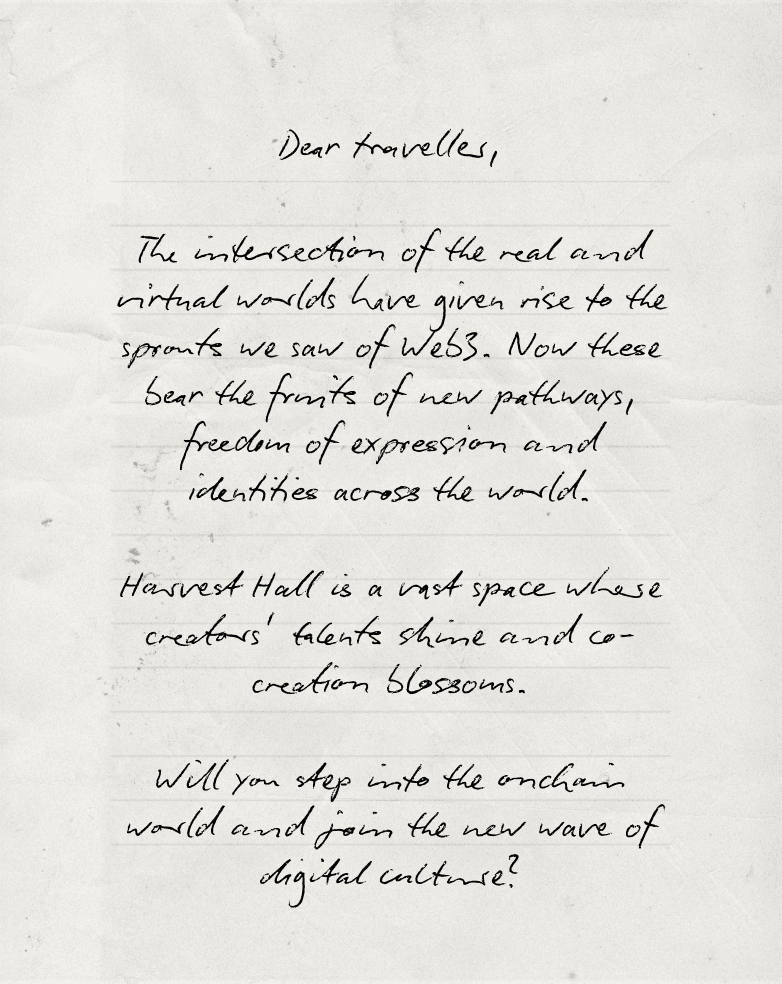 Dear traveller,
The intersection of the real and
virtual worlds have given rise to the
sprouts we saw of Web3. Now these
bear the fruits of new pathways,
freedom of expression and
identities across the world.
Harvest Hall is a vast space whose
creators' talents shine and co-
creation blossoms.
Will you step into the onchain
world and join the new wave of
digital culture?